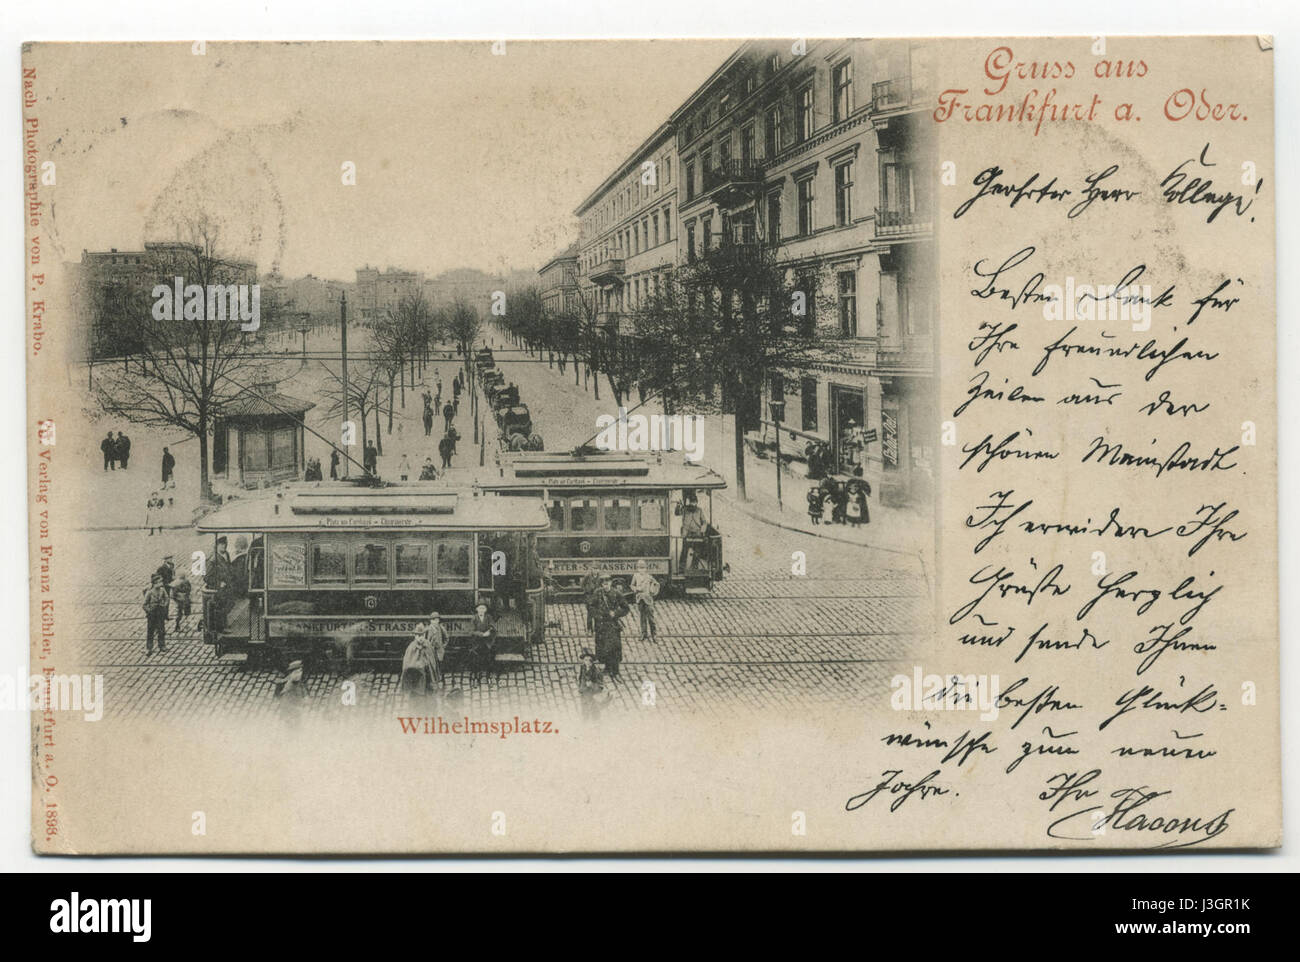 Gruss aus
Frankfurt a. Oder.
Geehrter Herr Kollege!
Besten Dank für
Ihre freundlichen
Zeilen aus der
schönen Mainstadt.
Ich erwidere Ihre
Grüße herzlich
und sende Ihnen
die besten Glück=
wünsche zum neuen
Jahre. Ihr
Nach Photographie von P. Krabo.
76. Verlag von Franz Köhler, Frankfurt a. O. 1898.
FRANKFURTER-STRASSENBAHN.
FRANKFURTER-STRASSENBAHN.
Wilhelmsplatz.
alamy
Image ID: J3GR1K
www.alamy.com